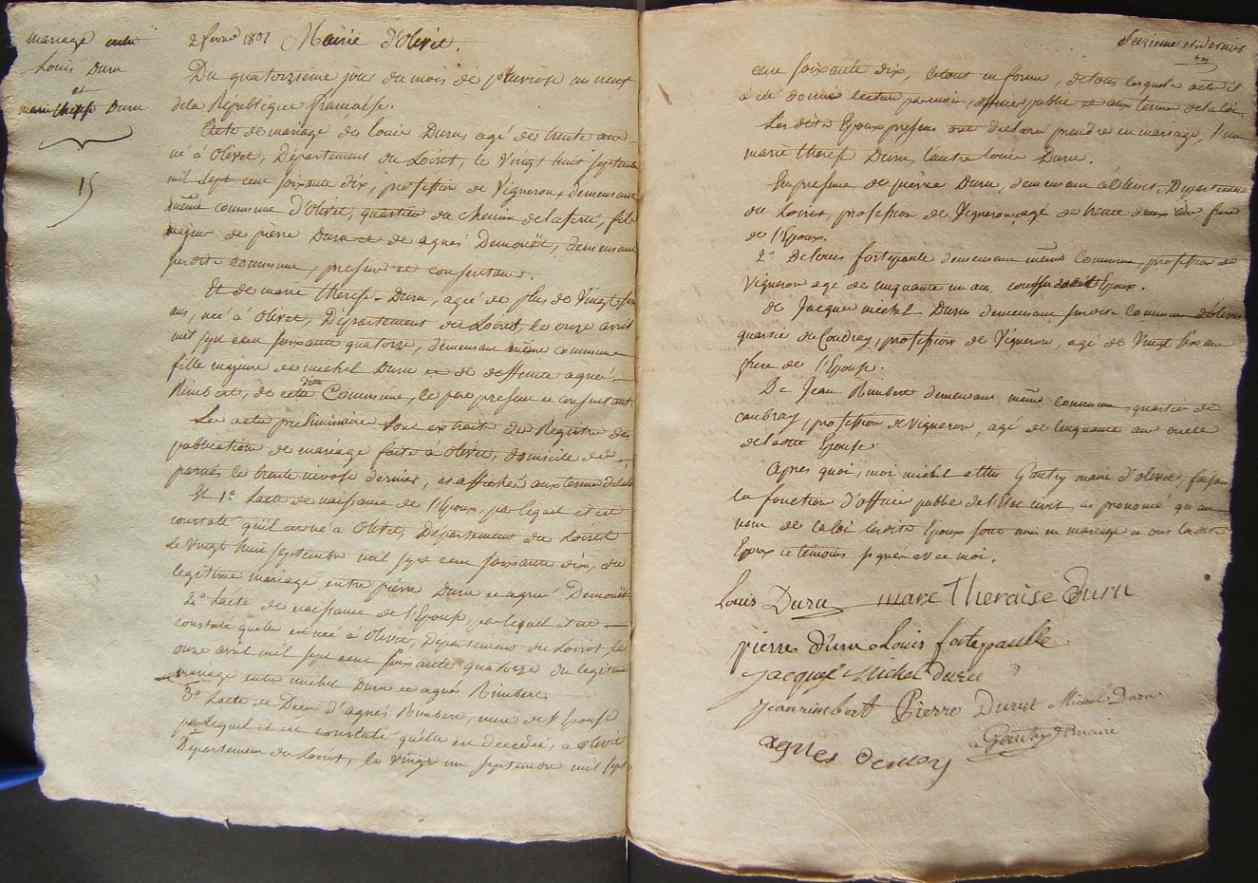 mariage entre
Louis Duru
et
marie therese Duru
15
2 fevrier 1801 Mairie d'olivet.
Du quatorzieme jour du mois de pluviose an neuf
de la République francaise.
Acte de mariage de louis Duru agé de trente ans
né à olivet, Département du Loiret, le vingt huit septembre
mil sept cent soixante dix, profession de Vigneron, demeurant
même commune d'olivet, quartier du chemin de la ferté, fils
majeur de pierre Duru et de agnés Demouët, demeurant
susdite commune, presens et consentans.
Et de marie therese Duru, agée de plus de Vingt six
ans, née à olivet, Département du Loiret, le onze avril
mil sept cent soixante quatorze, demeurant même commune
fille majeure de michel Duru et de deffunte agnés
Rimbert, de cette Commune, le pere present et consentant.
Les actes préliminaires sont extraits des Registres des
publications de mariage faites à olivet, domicile des
parties le trente nivose dernier, et affichés aux termes de la loi
Et 1° Lacte de naissance de l'Epoux, par lequel il est
constaté qu'il est né à olivet, Département du Loiret
le vingt huit septembre mil sept cent soixante dix, du
legitime mariage entre pierre Duru et agnés Demouët
2° Lacte de naissance de l'Epouse, par lequel il est
constaté quelle est née à olivet, Département du Loiret le
onze avril mil sept cent soixante quatorze du legitime
mariage entre michel Duru et agnés Rimbert
3° Lacte de Deces d'agnés Rimbert, mere de l'Epouse
par lequel il est constaté qu'elle est decedée, à olivet
Département du Loiret, le vingt un septembre mil sept
Seizieme et dernier
cent soixante dix, le tout en forme, de tous lesquels actes il
a été donné lecture par moi, officier public et aux termes de la loi
Les dits Epoux presens ont declaré prendre en mariage, l'un
marie therese Duru, l'autre louis Duru.
En presence de pierre Duru, demeurant à Olivet, Département
du Loiret, profession de Vigneron, agé de trente deux ans frere
de l'Epoux.
2° De louis fortepaule demeurant même Commune, profession de
Vigneron agé de cinquante un ans, cousin dudit Epoux.
de Jacques michel Duru demeurant susdite commune d'olivet
quartier du Coudray, profession de Vigneron, agé de Vingt trois ans
frere de l'Epouse.
De Jean Rimbert demeurant même commune quartier du
coudray, profession de vigneron, agé de cinquante ans oncle
de ladite Epouse
Apres quoi, moi michel Gautry maire d'olivet, faisant
les fonctions d'officier public de l'Etat civil, ai prononcé qu'au
nom de la loi lesdits Epoux sont unis en mariage et ont lesdits
Epoux et temoins signés avec moi.
Louis Duru marie Theraise Duru
pierre duru Louis fortepaulle
jacque michel duru
jean rimbert Pierre Durut Michel Duru
agnes demoy Gautry maire